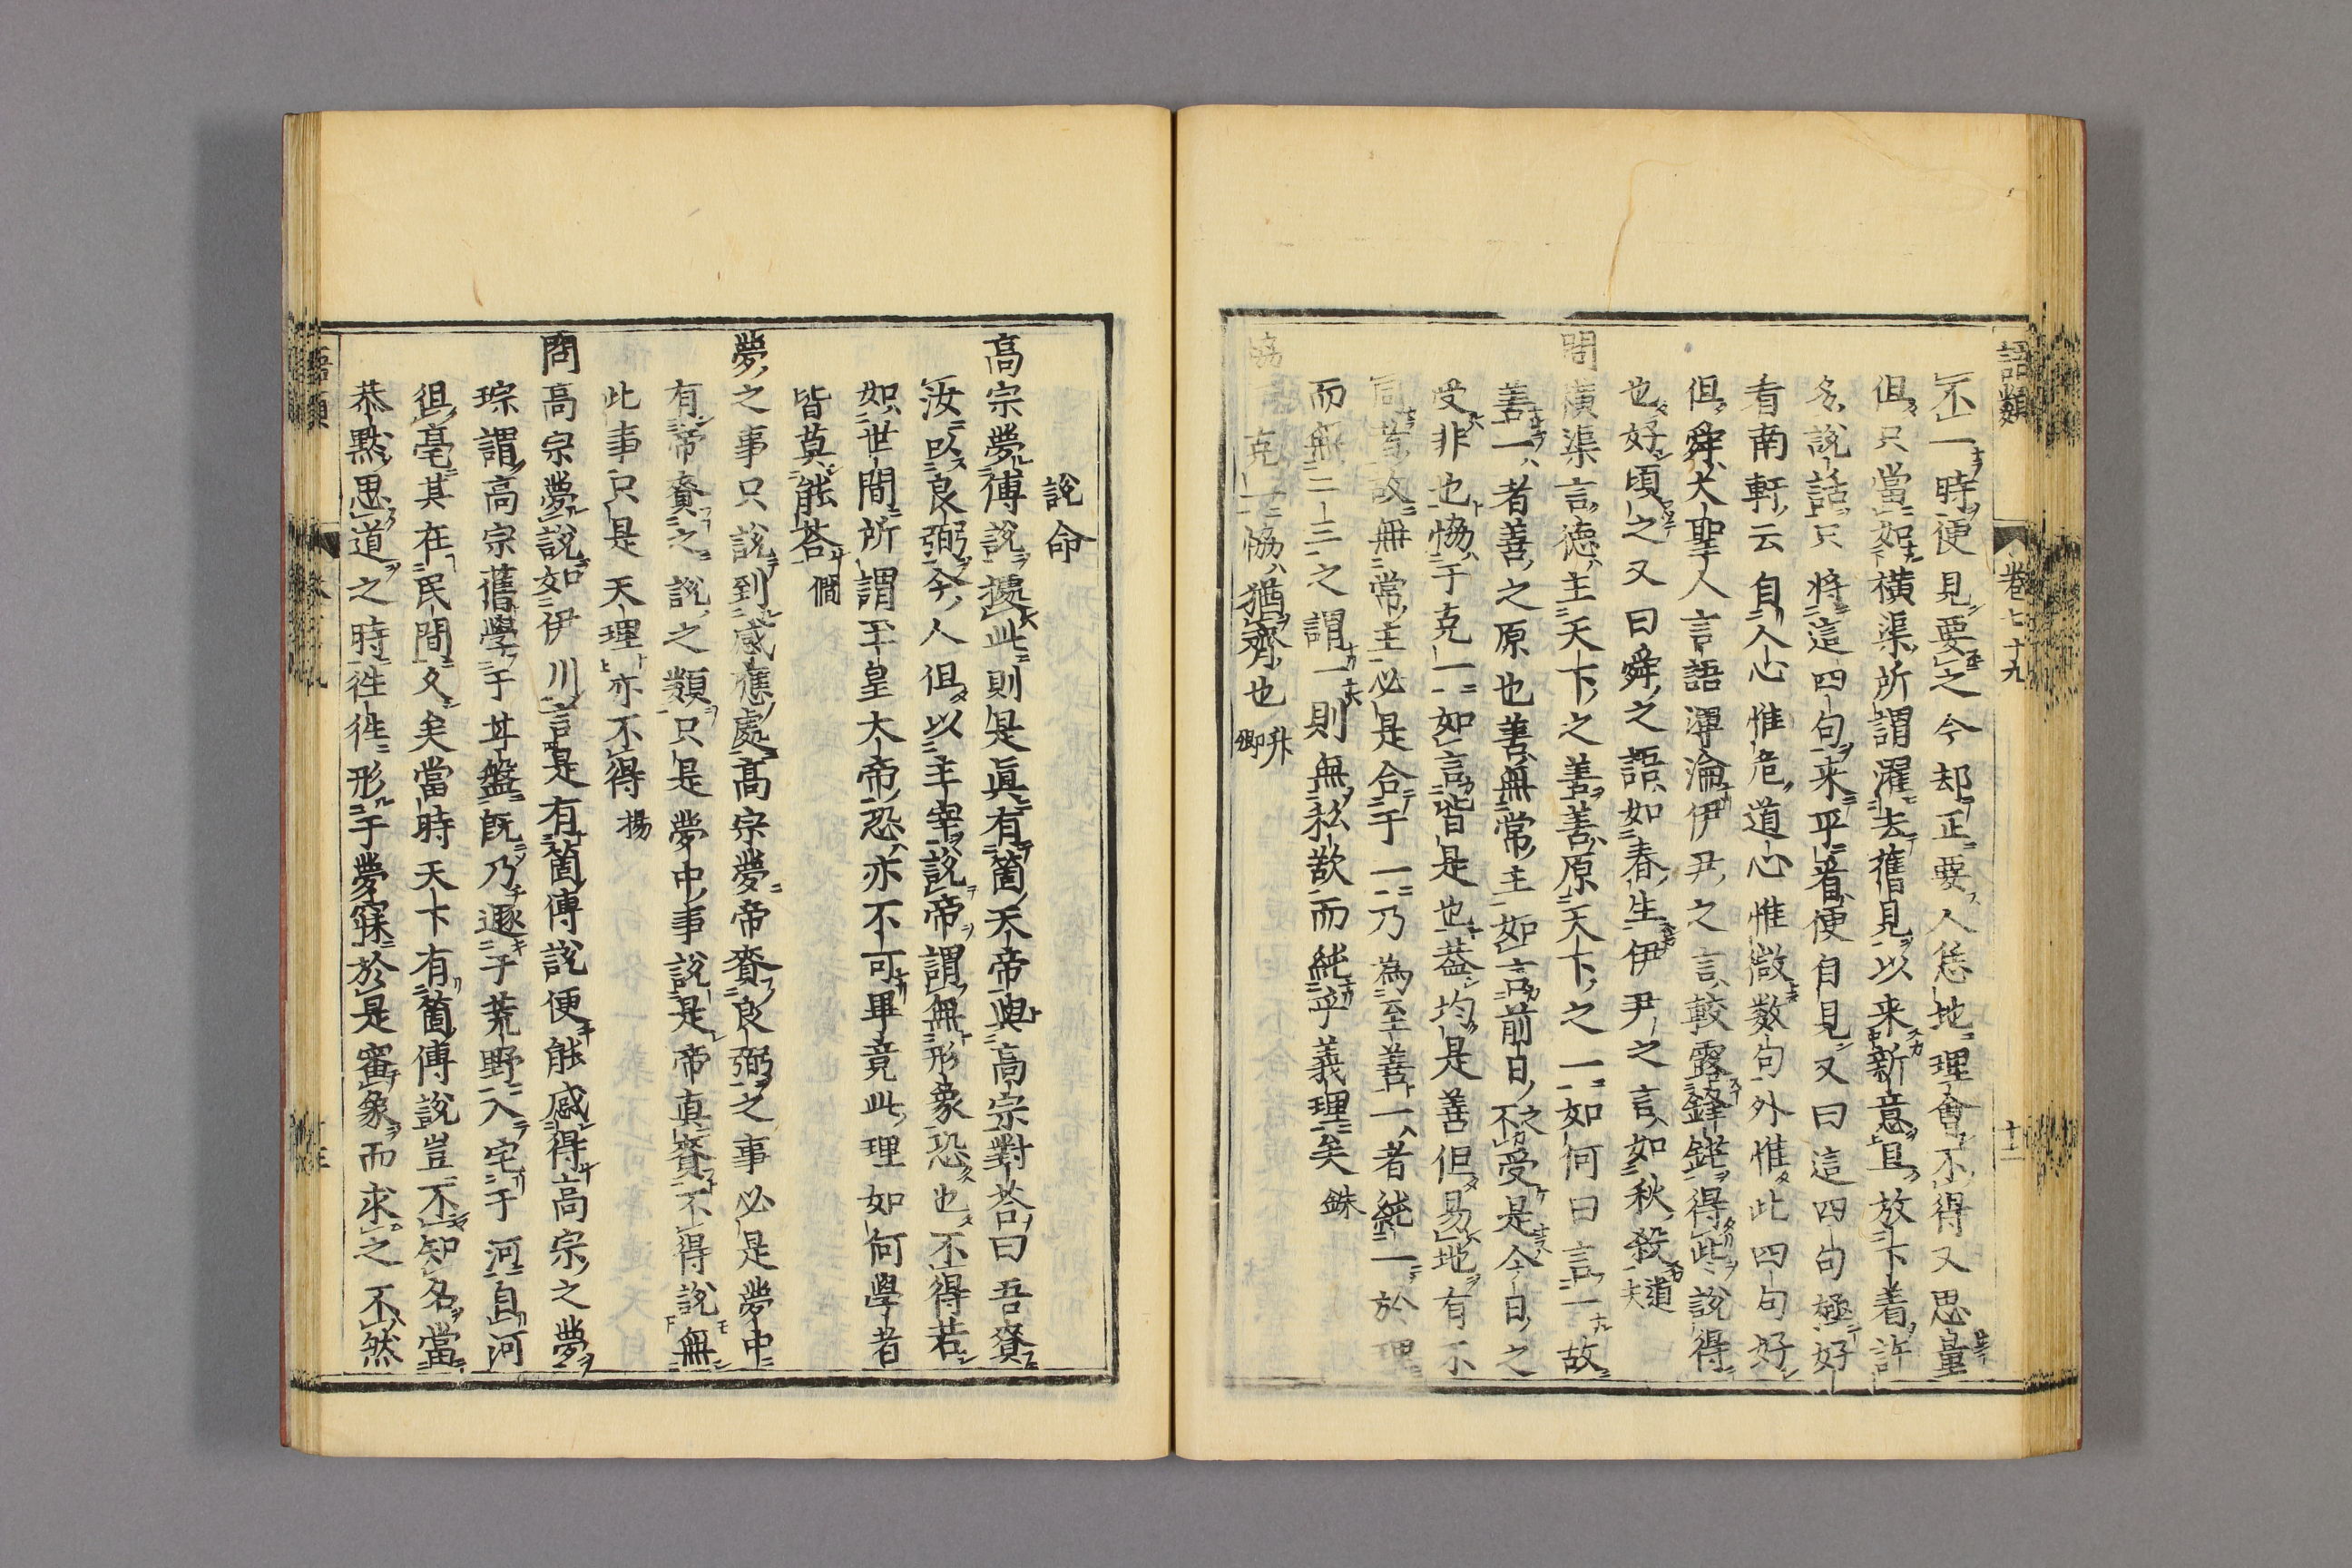 語類 卷七十九 十二
不一時便見要之今却正要人恁地理會不得又思量
但只當如橫渠所謂濯去舊見以来新意且放下着許
多說話只將這四句来平看便自見又曰這四句極好
看南軒云自人心惟危道心惟微数句外惟此四句好
但舜大聖人言語渾淪伊尹之言較露鋒鋩得些說得
也好頃之又曰舜之語如春生伊尹之言如秋殺 道夫
問橫渠言德主天下之善善原天下之一如何曰言一故
善一者善之原也善無常主如言前日之不受是今日之
受非也恊于克一如言皆是也葢均是善但易地有不
同者故無常主必是合于一乃為至善一者純一於理
而無二三之謂一則無私欲而純乎義理矣 銖
恊于克一恊猶齊也 升卿
說命
高宗夢傅說據此則是眞有箇天帝與高宗對荅曰吾賚
汝以良弼今人但以主宰說帝謂無形象恐也不得若
如世間所謂玉皇大帝恐亦不可畢竟此理如何學者
皆莫能荅 僩
夢之事只說到感應處高宗夢帝賚良弼之事必是夢中
有帝賚之說之類只是夢中事說是帝真賚不得說無
此事只是天理亦不得 揚
問高宗夢說如伊川言是有箇傅說便能感得高宗之夢
琮謂高宗舊學于甘盤旣乃遯于荒野入宅于河自河
徂亳其在民間久矣當時天下有箇傅說豈不知名當
恭黙思道之時往往形於夢寐於是審象而求之不然
語類